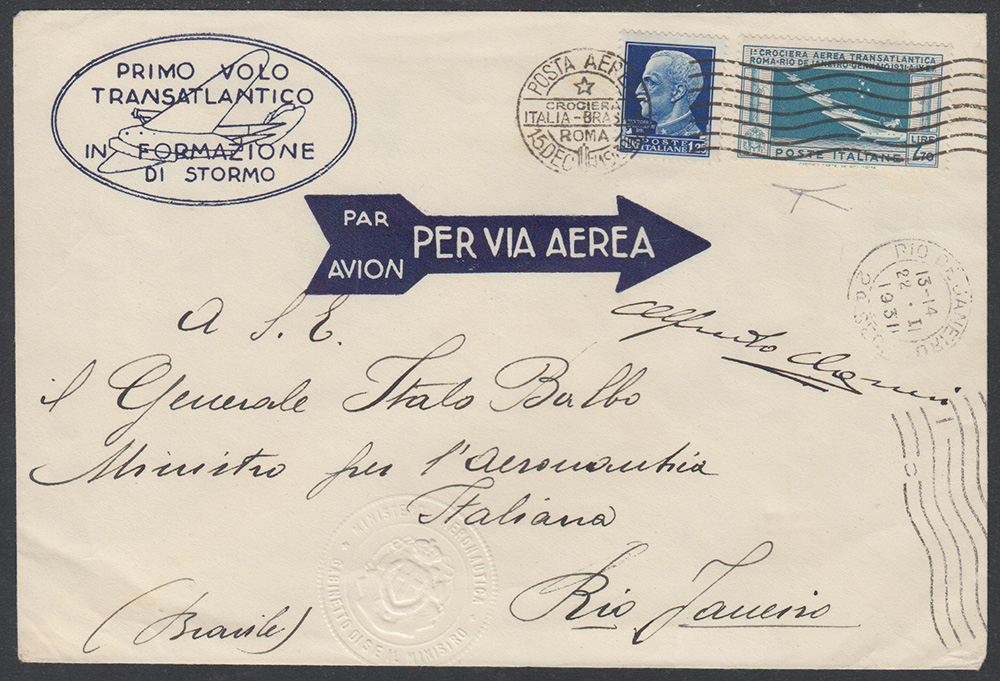 PRIMO VOLO
TRANSATLANTICO
IN FORMAZIONE
DI STORMO
POSTA AEREA
CROCIERA
ITALIA-BRAS
ROMA
15 DEC
POSTE
ITALIANE 1,25
1ª CROCIERA AEREA TRANSATLANTICA
ROMA-RIO DE JANEIRO-GENNAIO 1931
LIRE
7,70
POSTE ITALIANE
PAR
AVION
PER VIA AEREA
RIO DE JANEIRO
13-14
22 . II
1931
A S. E.
il Generale Italo Balbo
Ministro per l'Aeronautica
Italiana
Rio Janeiro
(Brasile)
Alfredo
MINISTERO AERONAUTICA
GABINETTO DI S.E. IL MINISTRO